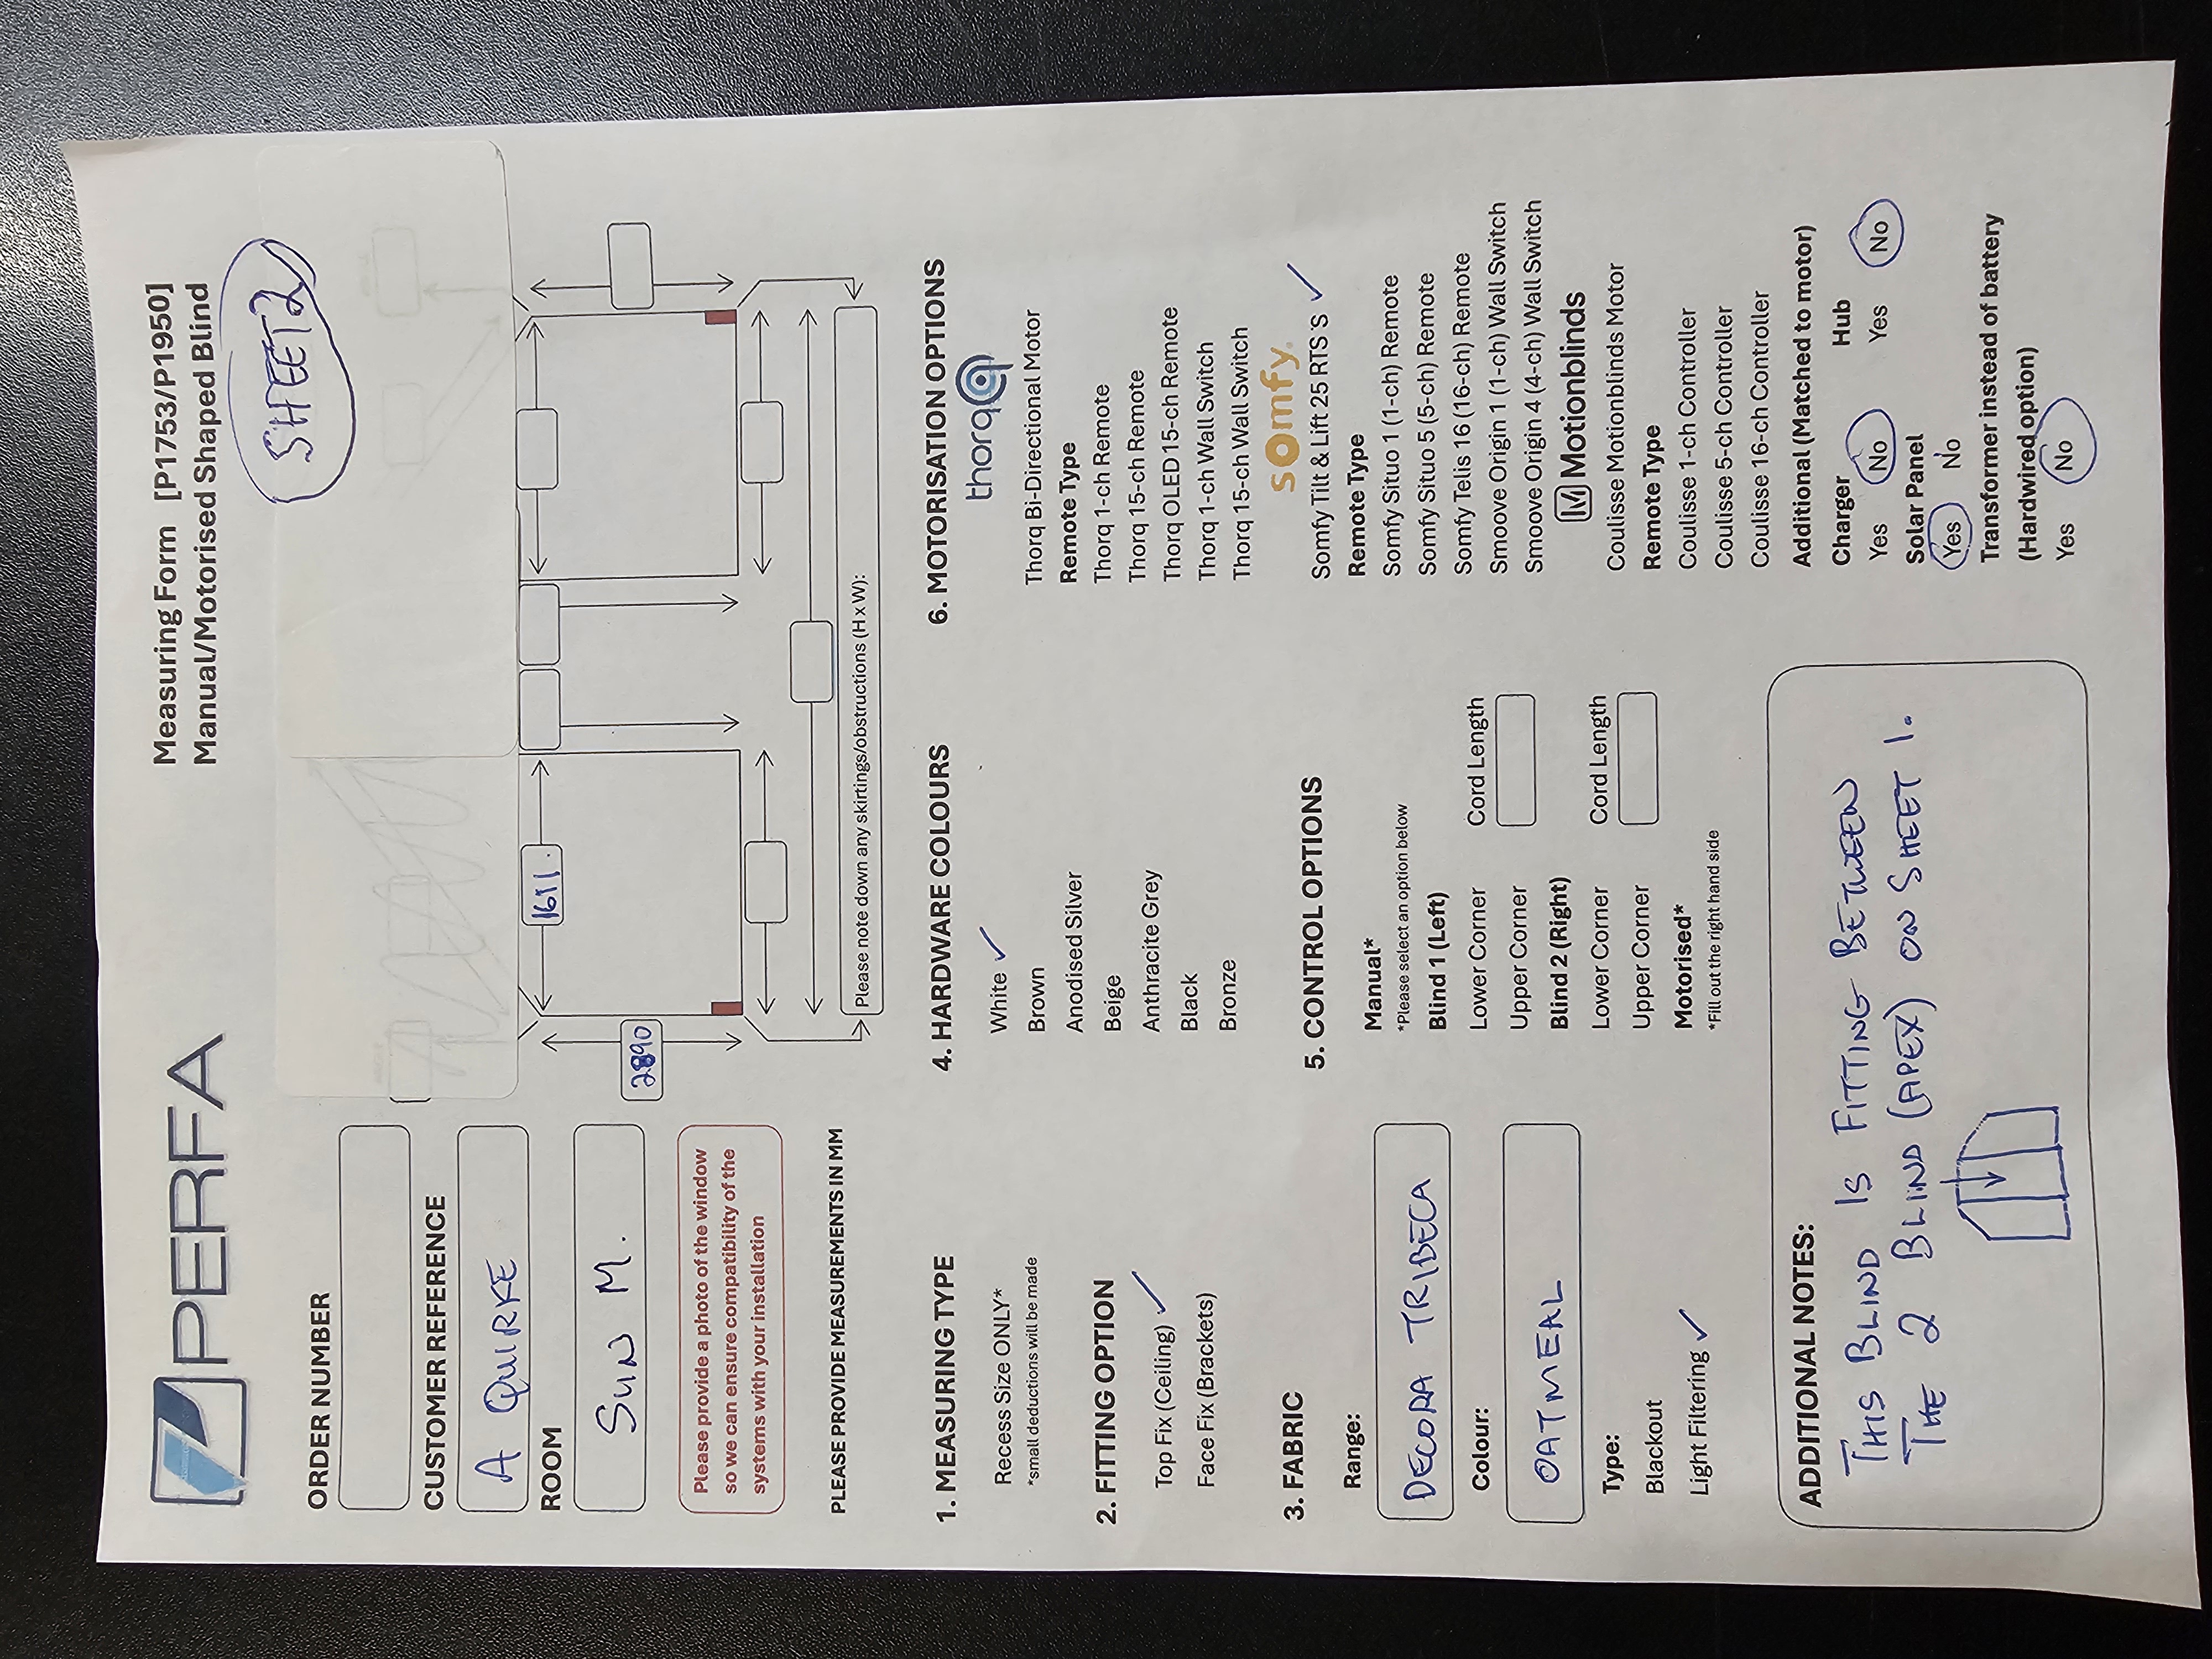 PERFA
Measuring Form [P1753/P1950]
Manual/Motorised Shaped Blind
SHEET 2
ORDER NUMBER
CUSTOMER REFERENCE
A QUIRKE
ROOM
SUN M.
Please provide a photo of the window
so we can ensure compatibility of the
systems with your installation
PLEASE PROVIDE MEASUREMENTS IN MM
1611.
2890
Please note down any skirtings/obstructions (H x W):
1. MEASURING TYPE
Recess Size ONLY*
*small deductions will be made
2. FITTING OPTION
Top Fix (Ceiling) ✓
Face Fix (Brackets)
3. FABRIC
Range:
DECORA TRIBECA
Colour:
OATMEAL
Type:
Blackout
Light Filtering ✓
4. HARDWARE COLOURS
White ✓
Brown
Anodised Silver
Beige
Anthracite Grey
Black
Bronze
5. CONTROL OPTIONS
Manual*
*Please select an option below
Blind 1 (Left)
Lower Corner
Cord Length
Upper Corner
Blind 2 (Right)
Lower Corner
Cord Length
Upper Corner
Motorised*
*Fill out the right hand side
6. MOTORISATION OPTIONS
thorq
Thorq Bi-Directional Motor
Remote Type
Thorq 1-ch Remote
Thorq 15-ch Remote
Thorq OLED 15-ch Remote
Thorq 1-ch Wall Switch
Thorq 15-ch Wall Switch
somfy.
Somfy Tilt & Lift 25 RTS's ✓
Remote Type
Somfy Situo 1 (1-ch) Remote
Somfy Situo 5 (5-ch) Remote
Somfy Telis 16 (16-ch) Remote
Smoove Origin 1 (1-ch) Wall Switch
Smoove Origin 4 (4-ch) Wall Switch
M Motionblinds
Coulisse Motionblinds Motor
Remote Type
Coulisse 1-ch Controller
Coulisse 5-ch Controller
Coulisse 16-ch Controller
Additional (Matched to motor)
Charger Hub
Yes No Yes No
Solar Panel
Yes No
Transformer instead of battery
(Hardwired option)
Yes No
ADDITIONAL NOTES:
THIS BLIND IS FITTING BETWEEN
THE 2 BLIND (APEX) ON SHEET 1.